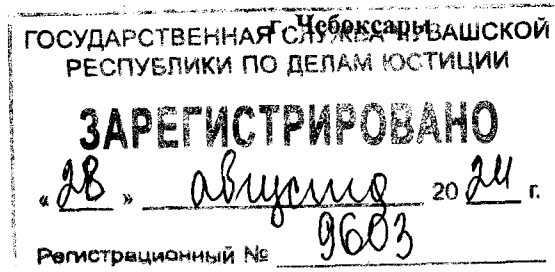 г. Чебоксары
ГОСУДАРСТВЕННАЯ СЛУЖБА ЧУВАШСКОЙ
РЕСПУБЛИКИ ПО ДЕЛАМ ЮСТИЦИИ
ЗАРЕГИСТРИРОВАНО
«28» августа 2024 г.
Регистрационный № 9603